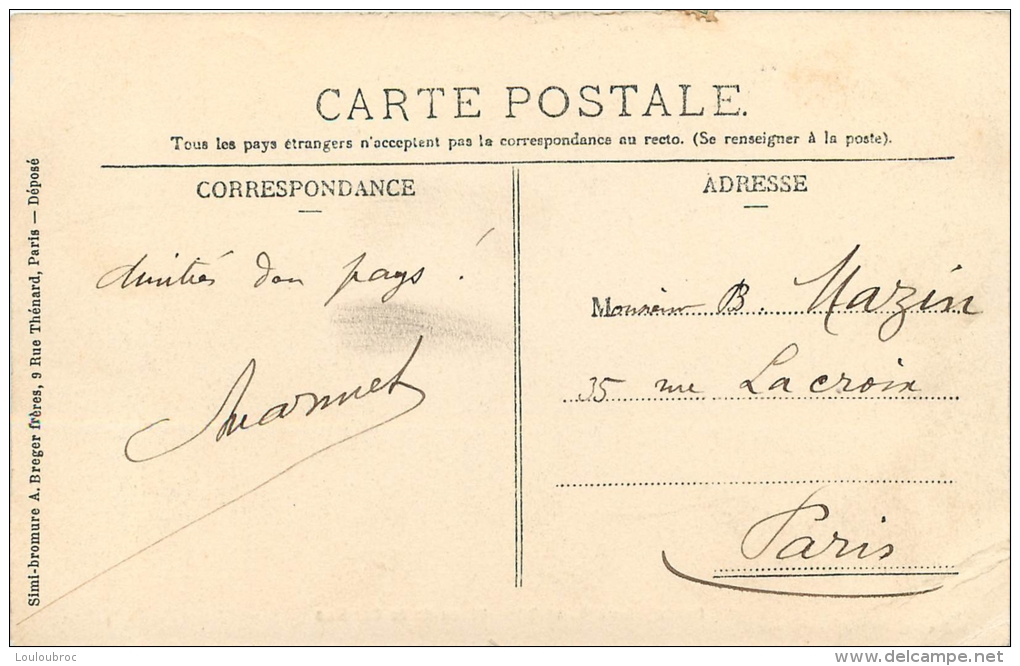 CARTE POSTALE.
Tous les pays étrangers n'acceptent pas la correspondance au recto. (Se renseigner à la poste).
CORRESPONDANCE
Amitiés d'au pays !
ADRESSE
Monsieur B. Mazin
35 rue Lacroix
Paris
Simi-bromure A. Breger frères, 9 Rue Thénard, Paris — Déposé
Louloubroc